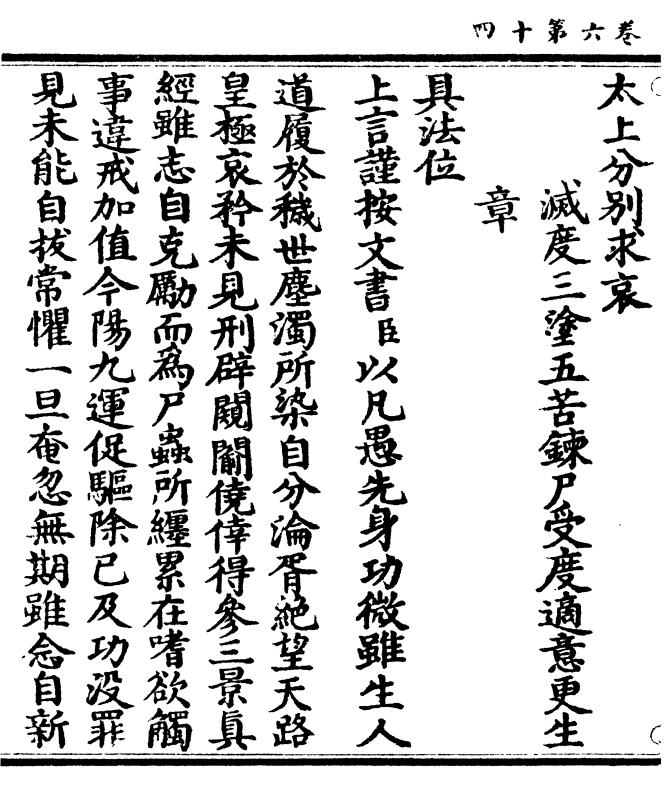 卷六第十四
太上分别求哀
滅度三塗五苦鍊尸受度適意更生
章
具法位
上言謹按文書臣以凡愚先身功微雖生人
道履於穢世塵濁所染自分淪胥絶望天路
皇極哀矜未見刑辟闚𨵦僥倖得參三景真
經雖志自克勵而為尸蟲所纏累在嗜欲觸
事違戒加值今陽九運促驅除已及功没罪
見未能自拔常懼一旦奄忽無期雖念自新